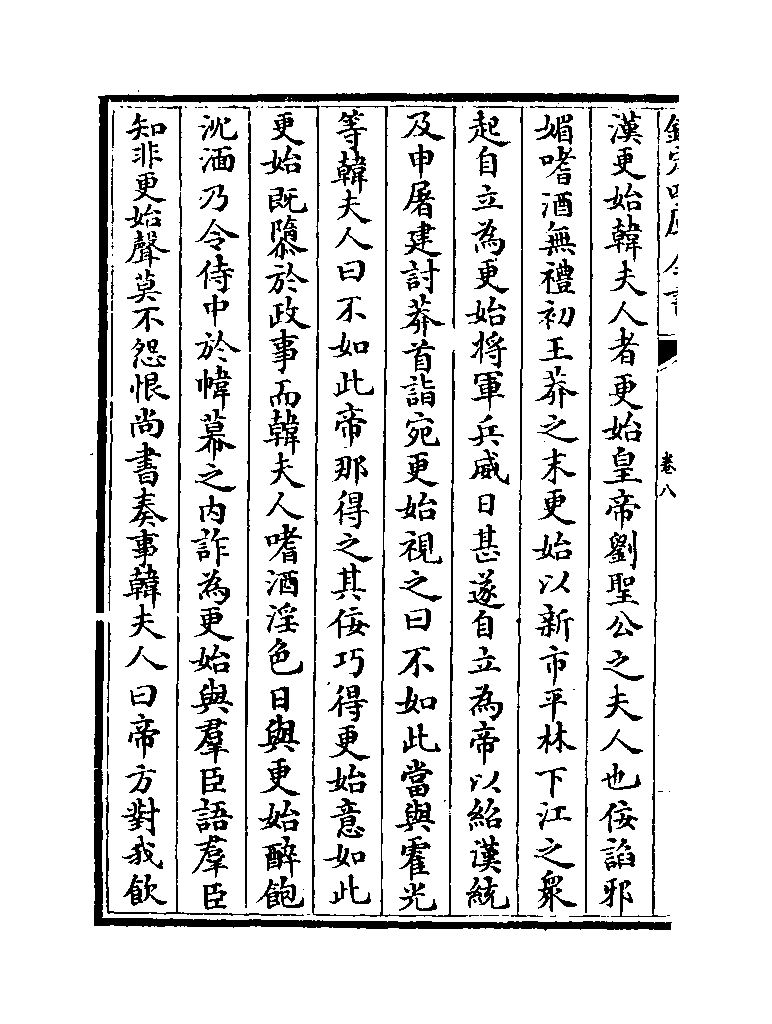 欽定四庫全書
卷八
漢更始韓夫人者更始皇帝劉聖公之夫人也佞諂邪
媚嗜酒無禮初王莽之末更始以新市平林下江之衆
起自立為更始將軍兵威日甚遂自立為帝以紹漢統
及申屠建討莽首詣宛更始視之曰不如此當與霍光
等韓夫人曰不如此帝那得之其佞巧得更始意如此
更始既隳於政事而韓夫人嗜酒淫色日與更始醉飽
沈湎乃令侍中於幃幕之内詐為更始與羣臣語羣臣
知非更始聲莫不怨恨尚書奏事韓夫人曰帝方對我飲